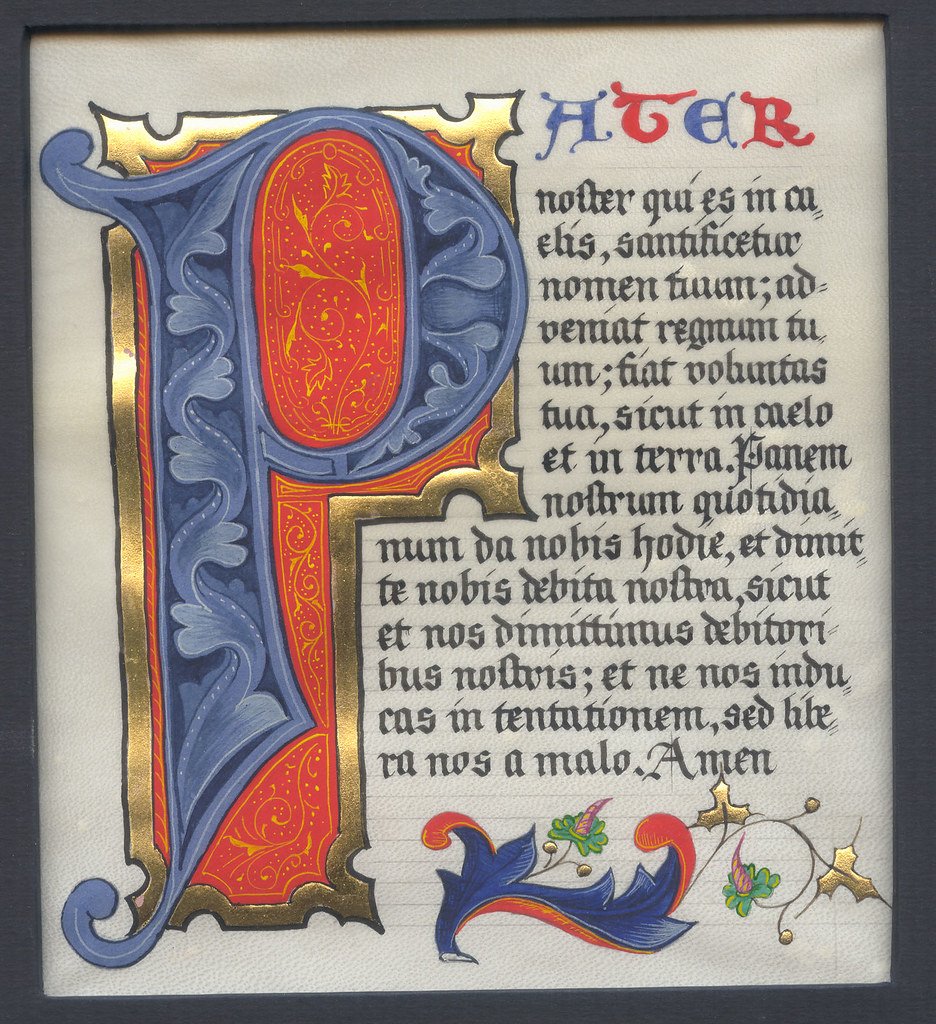 PATER
noster qui es in ca
elis, santificetur
nomen tuum; ad=
veniat regnum tu
um; fiat voluntas
tua, sicut in caelo
et in terra. Panem
nostrum quotidia
num da nobis hodie, et dimit
te nobis debita nostra, sicut
et nos dimittimus debitori
bus nostris; et ne nos indu
cas in tentationem, sed libe
ra nos a malo. Amen